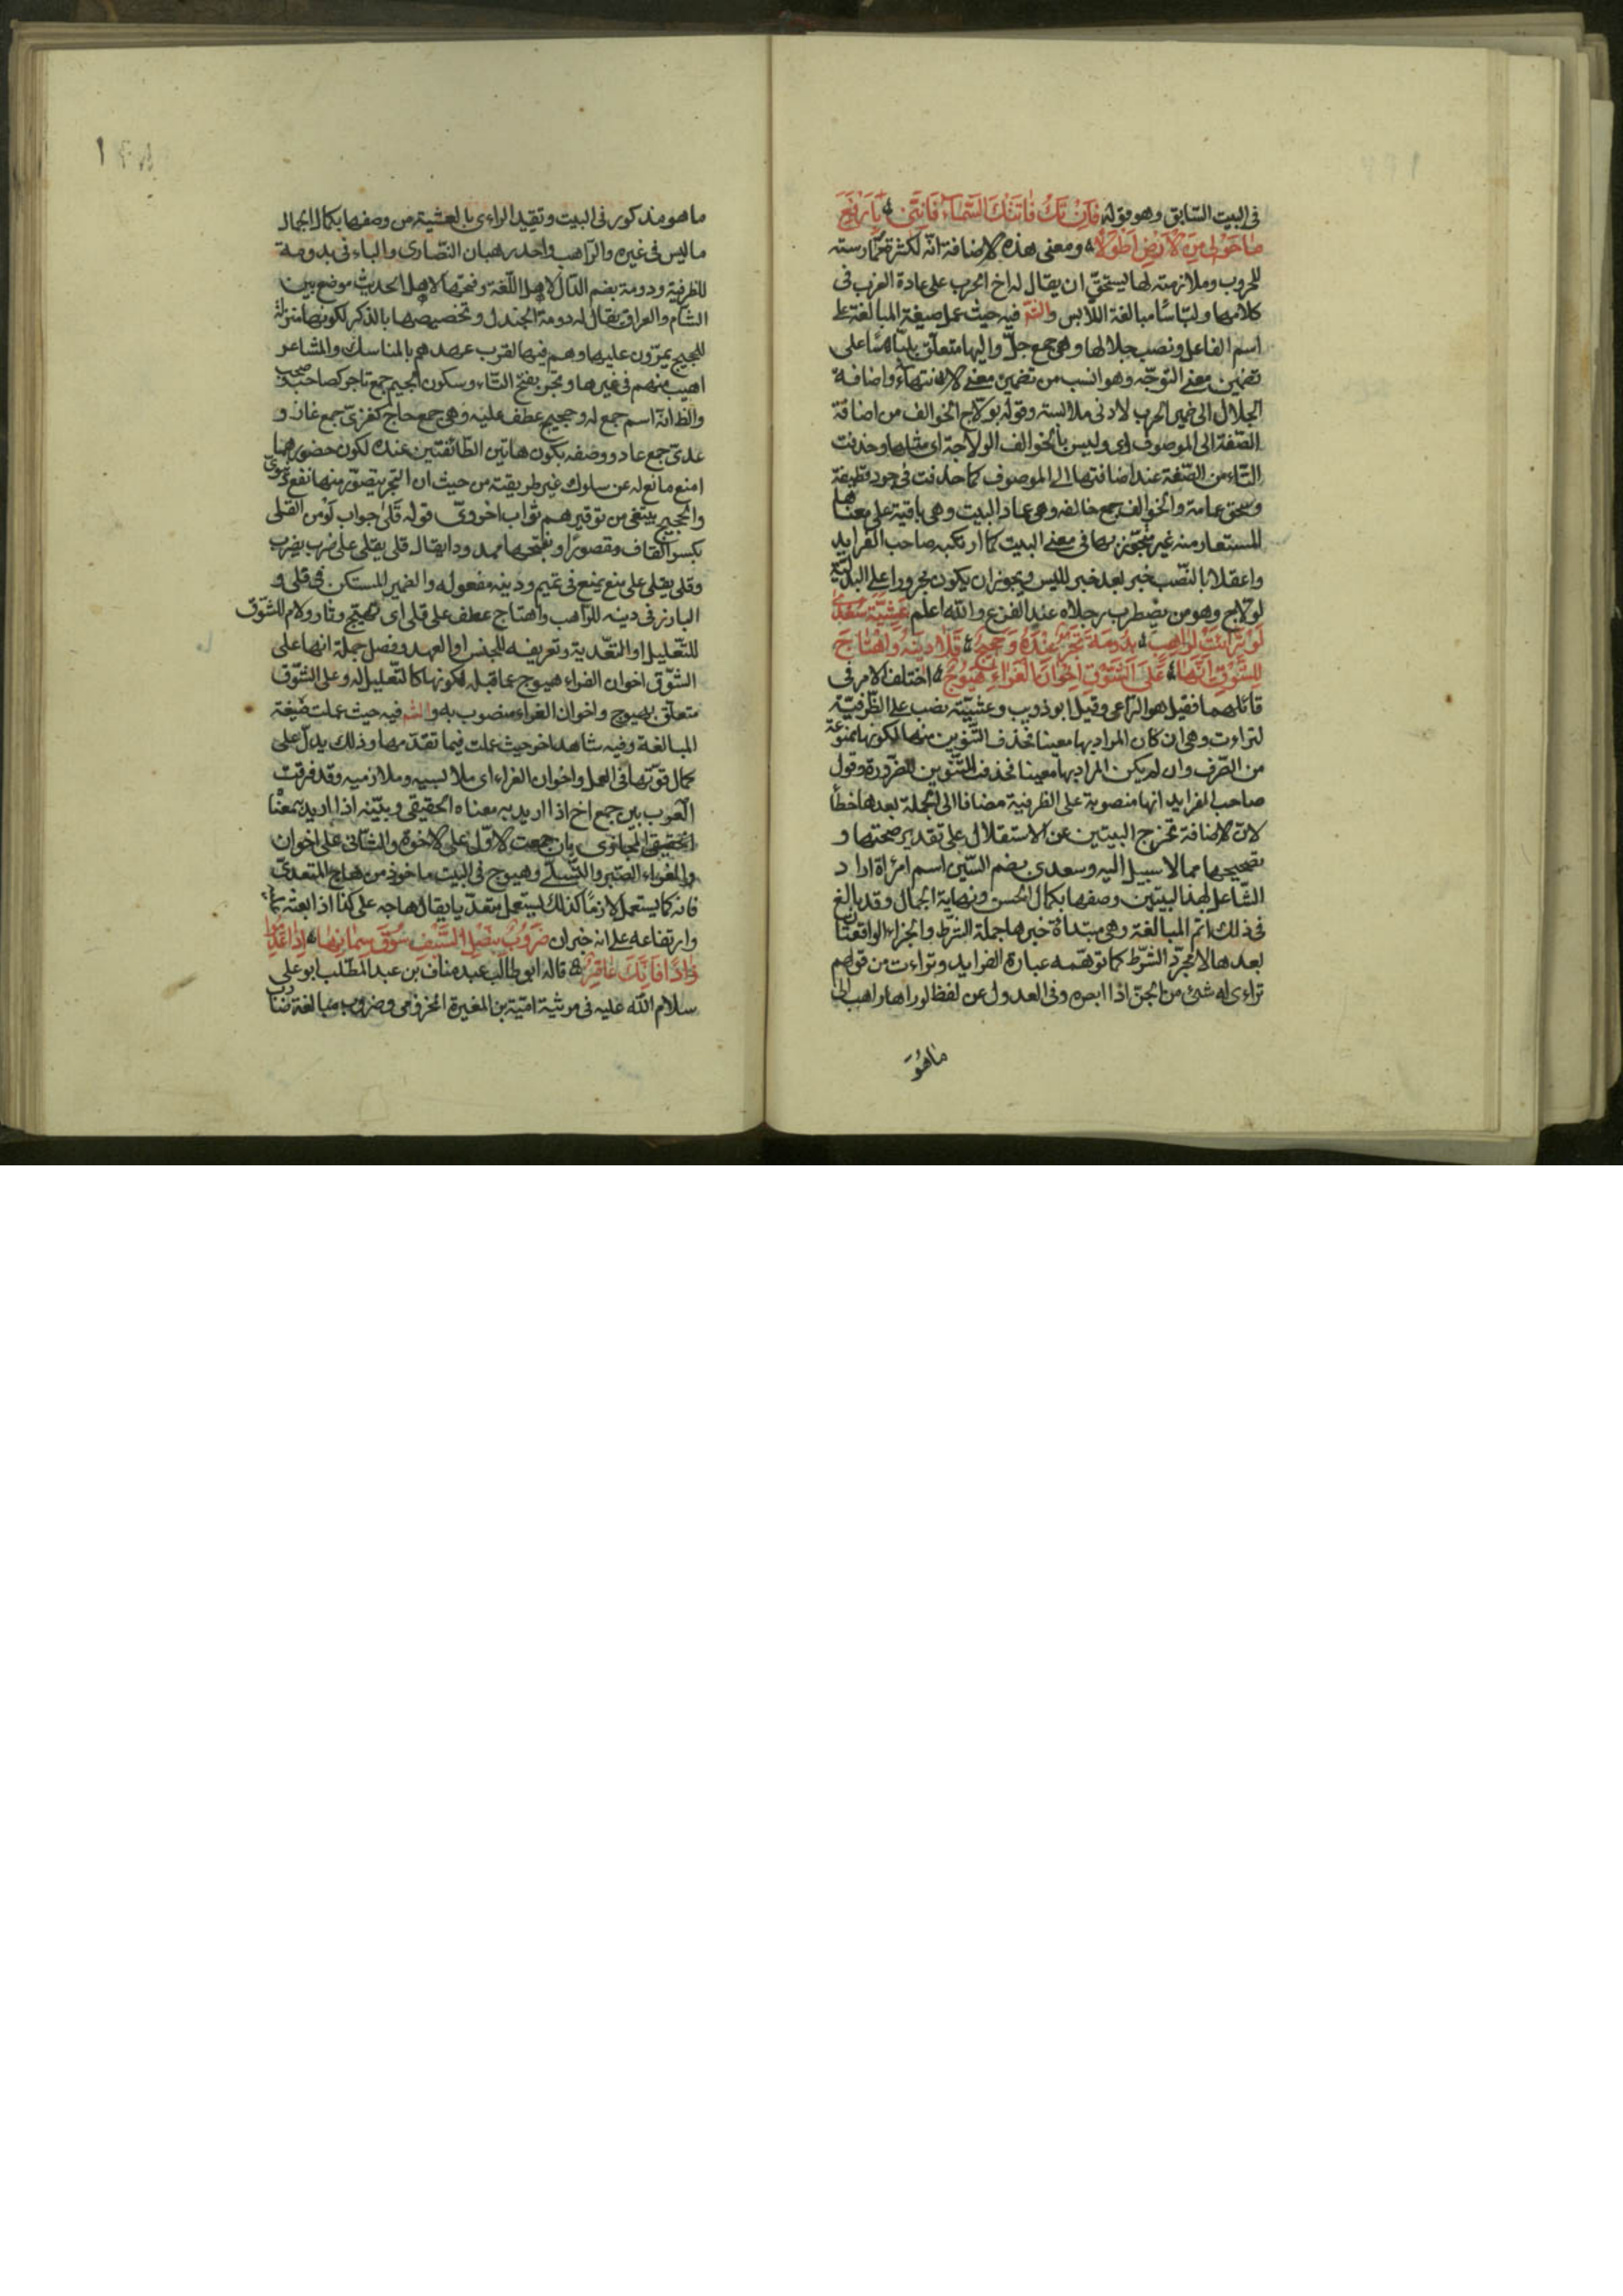 فى البيت السّابق وهو قوله فَاِنْ تَكُ فَاتَتْكَ السَّمَاءُ فَاِنَّنِى بِاَرْفَعَ
مَا حَوْلِى مِنَ الْاَرْضِ اَطْوَلَا ومعنى هذه الاضافة انّه لكثرة ممارسته
للحروب وملازمته لها يستحقّ ان يقال له اخ الحرب على عادة العرب فى
كلامها ولبّاسًا مبالغة اللابس والشم فيه حيث عمل صيغة المبالغة عمل
اسم الفاعل ونصب جلالها وهى جمع جلّ واليها متعلّق بلبّاسًا على
تضمين معنى التوجّه وهو انسب من تضمين معنى الانتهاء واضافة
الجلال الى ضمير الحرب لادنى ملابسة وقوله بولاج الخوالف من اضافة
الصّفة الى الموصوف اى وليس بالخوالف الولاجة اى مثلها وحذفت
التّاء من الصّفة عند اضافتها الى الموصوف كما حذفت فى جرد قطيفة
وسحق عمامة والخوالف جمع خالفه وهى عماد البيت وهى باقية على معناها
المستعار منه غير متجوّز بها فى معنى البيت كما ارتكبه صاحب الفرايد
واعقلا بالنّصب خبر بعد خبر لليس ويجوز ان يكون مجرورا على البدلية
لولاج وهو من يضطرب رجلاه عند الفزع والله اعلم عَشِيَّةَ سُعْدى
لَوْ تَرَاءَتْ لِرَاهِبٍ بِدُومَةَ تَجْرٌ عِنْدَهُ وَحَجِيجُ قَلَا دِينَهُ وَاهْتَاجَ
لِلشَّوْقِ اِنَّهَا عَلَى الشَّوْقِ اِخْوَانَ الْعَزَاءِ هَيُوجُ اختلف الامر فى
قائلهما فقيل هو الرّاعى وقيل ابو ذويب وعشيّة نصب على الظّرفيّة
لتراءت وهى ان كان المراد بها معينا فحذف التّنوين منها لكونها ممنوعة
من الصّرف وان لم يكن المراد بها معينا فحذف التّنوين للضّرورة وقول
صاحب الفرايد انها منصوبة على الظرفية مضافا الى الجملة بعدها خطأ
لانّ الاضافة تخرج البيتين عن الاستقلال على تقدير صحتها و
تصحيحها مما لا سبيل اليه وسعدى بضم السّين اسم امرأة اراد
الشّاعر بهذا البيتين وصفها بكمال الحسن ونهاية الجمال وقد بالغ
فى ذلك اتم المبالغة وهى مبتدأة خبرها جملة الشرط والجزاء الواقعتان
بعدها لا لمجرّد الشّرط كما توهّمه عبارة الفرايد وتراءت من قولهم
تراءى له شئ من الجنّ اذا ابصره وفى العدول عن لفظ لو راها راهب الى
ما هُوَ
ما هو مذكور فى البيت وتقييد الراءى بالعشية من وصفها بكمال الجمال
ما ليس فى غيره والرّاهب واحد رهبان النّصارى والباء فى بدومة
للظرفية ودومة بضم الدّال لاهل اللّغة وفتحها لاهل الحديث موضع بين
الشام والعراق يقال له دومة الجندل وتخصيصها بالذكر لكونها منزلة
للحجيج يمرّون عليها وهم فيها لقرب عهدهم بالمناسك والمشاعر
اهيب منهم فى غيرها وتجر بفتح التّاء وسكون الجيم جمع تاجر كصاحب وصحب
والظ انّه اسم جمع له وحجيج عطف عليه وهى جمع حاج كغزىّ جمع غاز و
عدىّ جمع عاد ووصفه بكون هاتين الطّائفتين عنده لكون حضورهما
امنع مانع له عن سلوك غير طريقته من حيث ان التجر يتصوّر منها نفع دنيوى
والحجيج يبتغى من توقيرهم ثواب اخروىّ قوله قَلَى جواب لَوْ من القلى
بكسر القاف ومقصورًا وبفتحها ممدودا يقال قلى يقلى على ضرب يضرب
وقلى يقلى على منع يمنع فى تميم ودينه مفعوله والضمير المستكن فى قلى و
البارز فى دينه للرّاهب واهتاج عطف على قلى اى تهيّج وثار ولام للشّوق
للتّعليل او التعّدية وتعريفه للجنس او العهد وفصل جملة انها على
الشوّق اخوان العزاء هيوج عما قبله لكونها كالتّعليل له وعلى الشّوق
متعلّق بهيوج واخوان العزاء منصوب به والشم فيه حيث عملت صيغة
المبالغة وفيه شاهد اخر حيث عملت فيما تقدّمها وذلك يدلّ على
كمال قوّتها فى العمل واخوان العزاء اى ملابسيه وملازميه وقد فرقت
العرب بين جمع اخ اذا اريد به معناه الحقيقى وبيّنه اذا اريد بمعناه
الحقيقى المجازى بان جمعت الاوّل على الاخوة والثّانى على اخوان
والعزاء الصّبر والتّسلّى وهيوج فى البيت ماخوذ من هاج المتعدىّ
فانه كما يستعمل لازمًا كذلك يستعمل متعدّيا يقال هاجه على كذا اذا بعثه
وارتفاعه على انه خبر ان ضَرُوبٌ بِنَصْلِ السَّيْفِ سُوقَ سِمَانِهَا اِذَا عَدِمُوا
زَادًا فَاِنَّكَ عَاقِرُ قاله ابو طالب عبد مناف بن عبد المطّلب ابو على
سلام الله عليه فى مرثية اميّة بن المغيرة المخزومى وضروب مبالغة